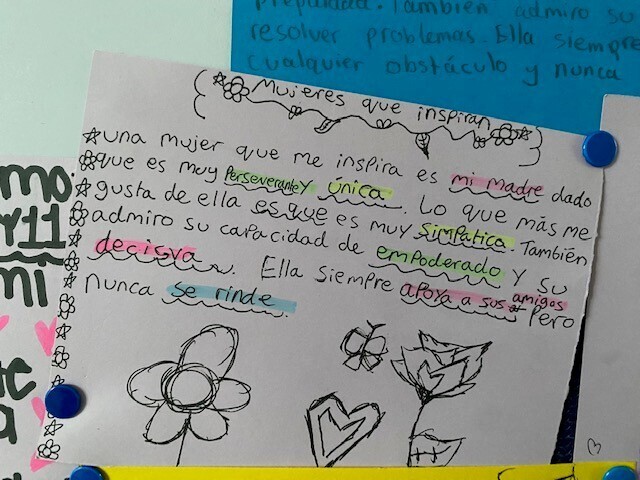 preparada. También admiro su
resolver problemas. Ella siempre
cualquier obstáculo y nunca
Mujeres que inspiran
una mujer que me inspira es mi madre dado
que es muy Perseverante y única. Lo que más me
gusta de ella es que es muy simpatica. También
admiro su capacidad de empoderado y su
decisva. Ella siempre apoya a sus amigos Pero
nunca se rinde.
mo
Y11
mi